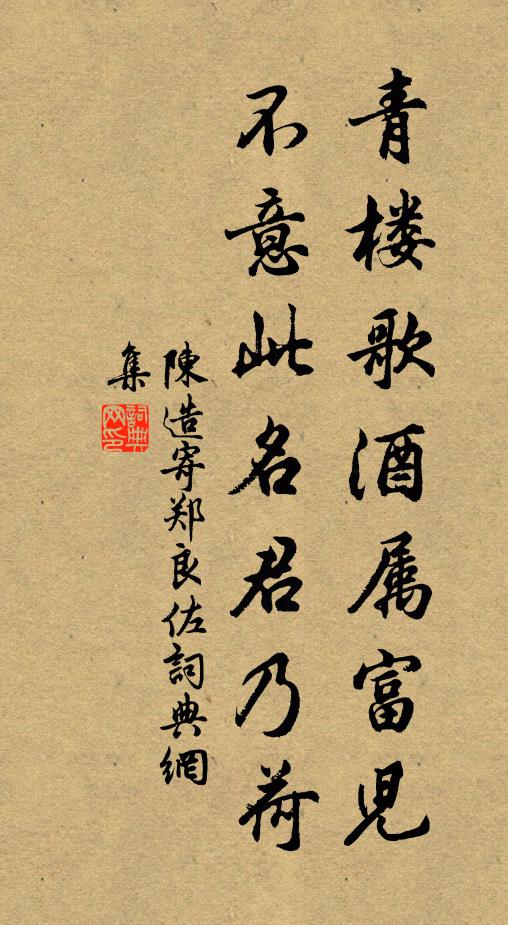 青楼歌酒属富児
不意此名君乃荷
陳造寄郑良佐詞典網
集
詞典
网印